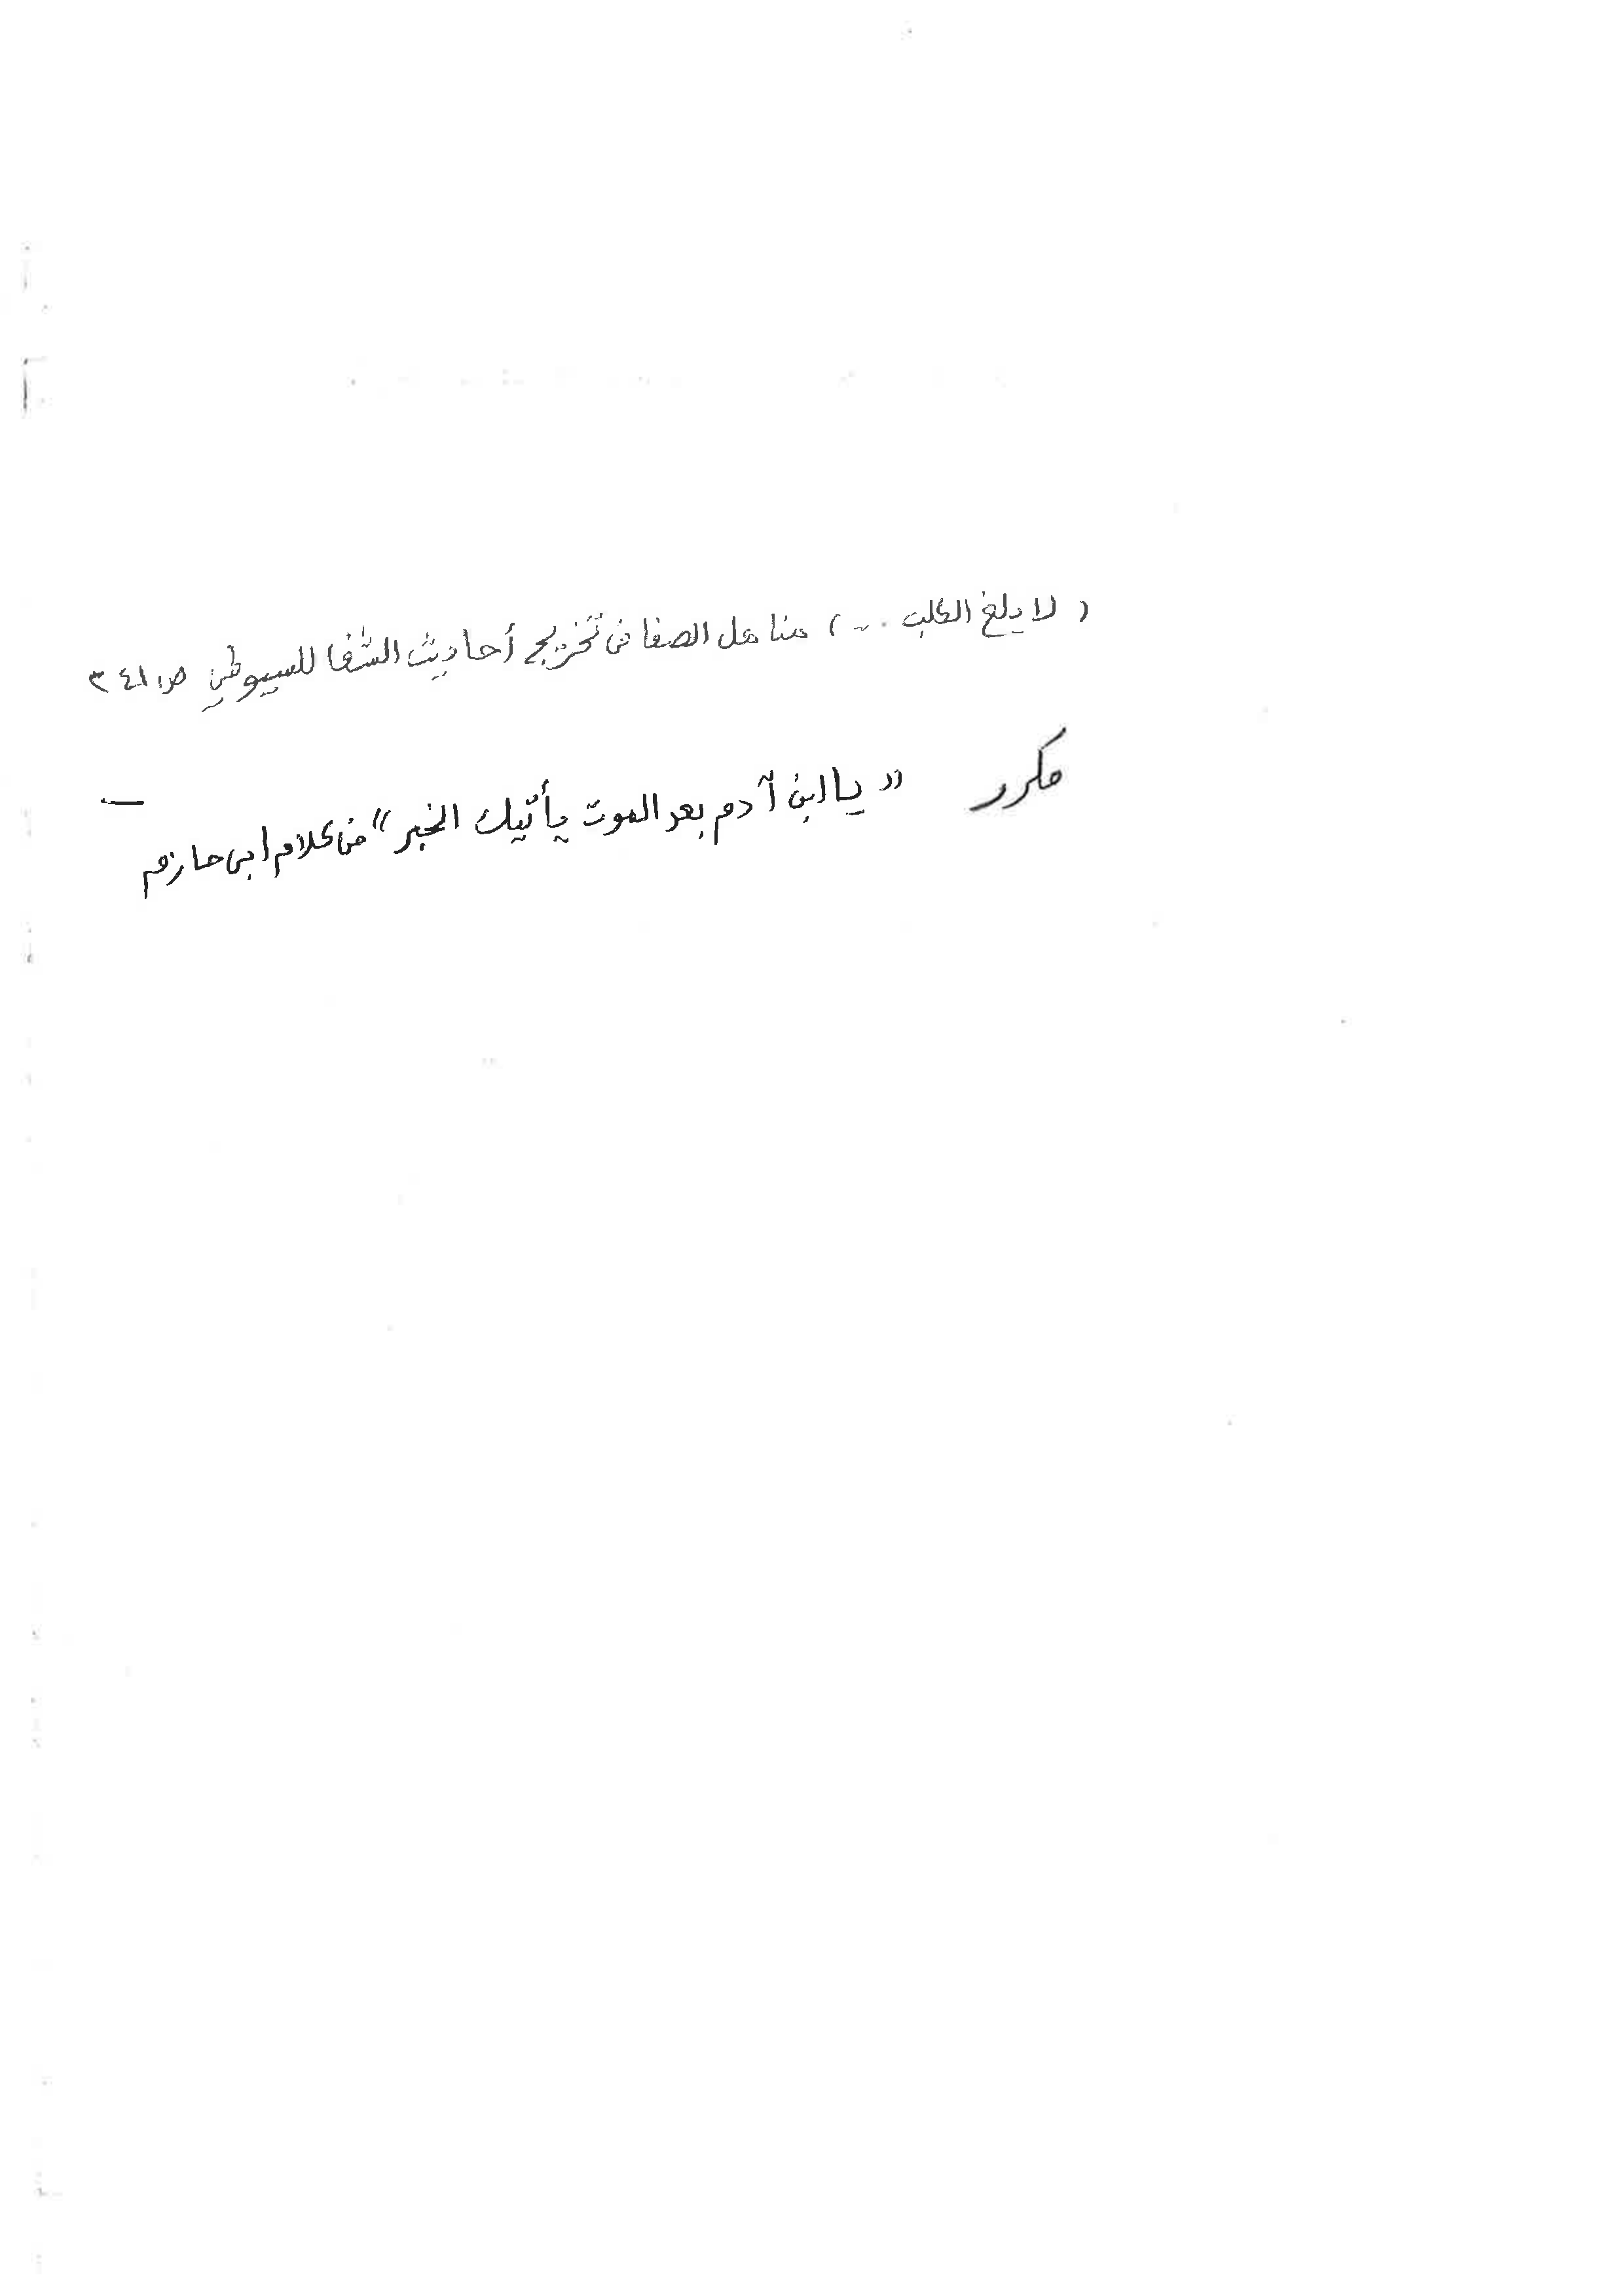 ( لا يلغ الكلب ... ) مناهل الصفا في تخريج أحاديث الشفا للسيوطي ص ٣٤١
مكرر « يا ابن آدم بعد الموت يأتيك الخبر » من كلام ابي حازم